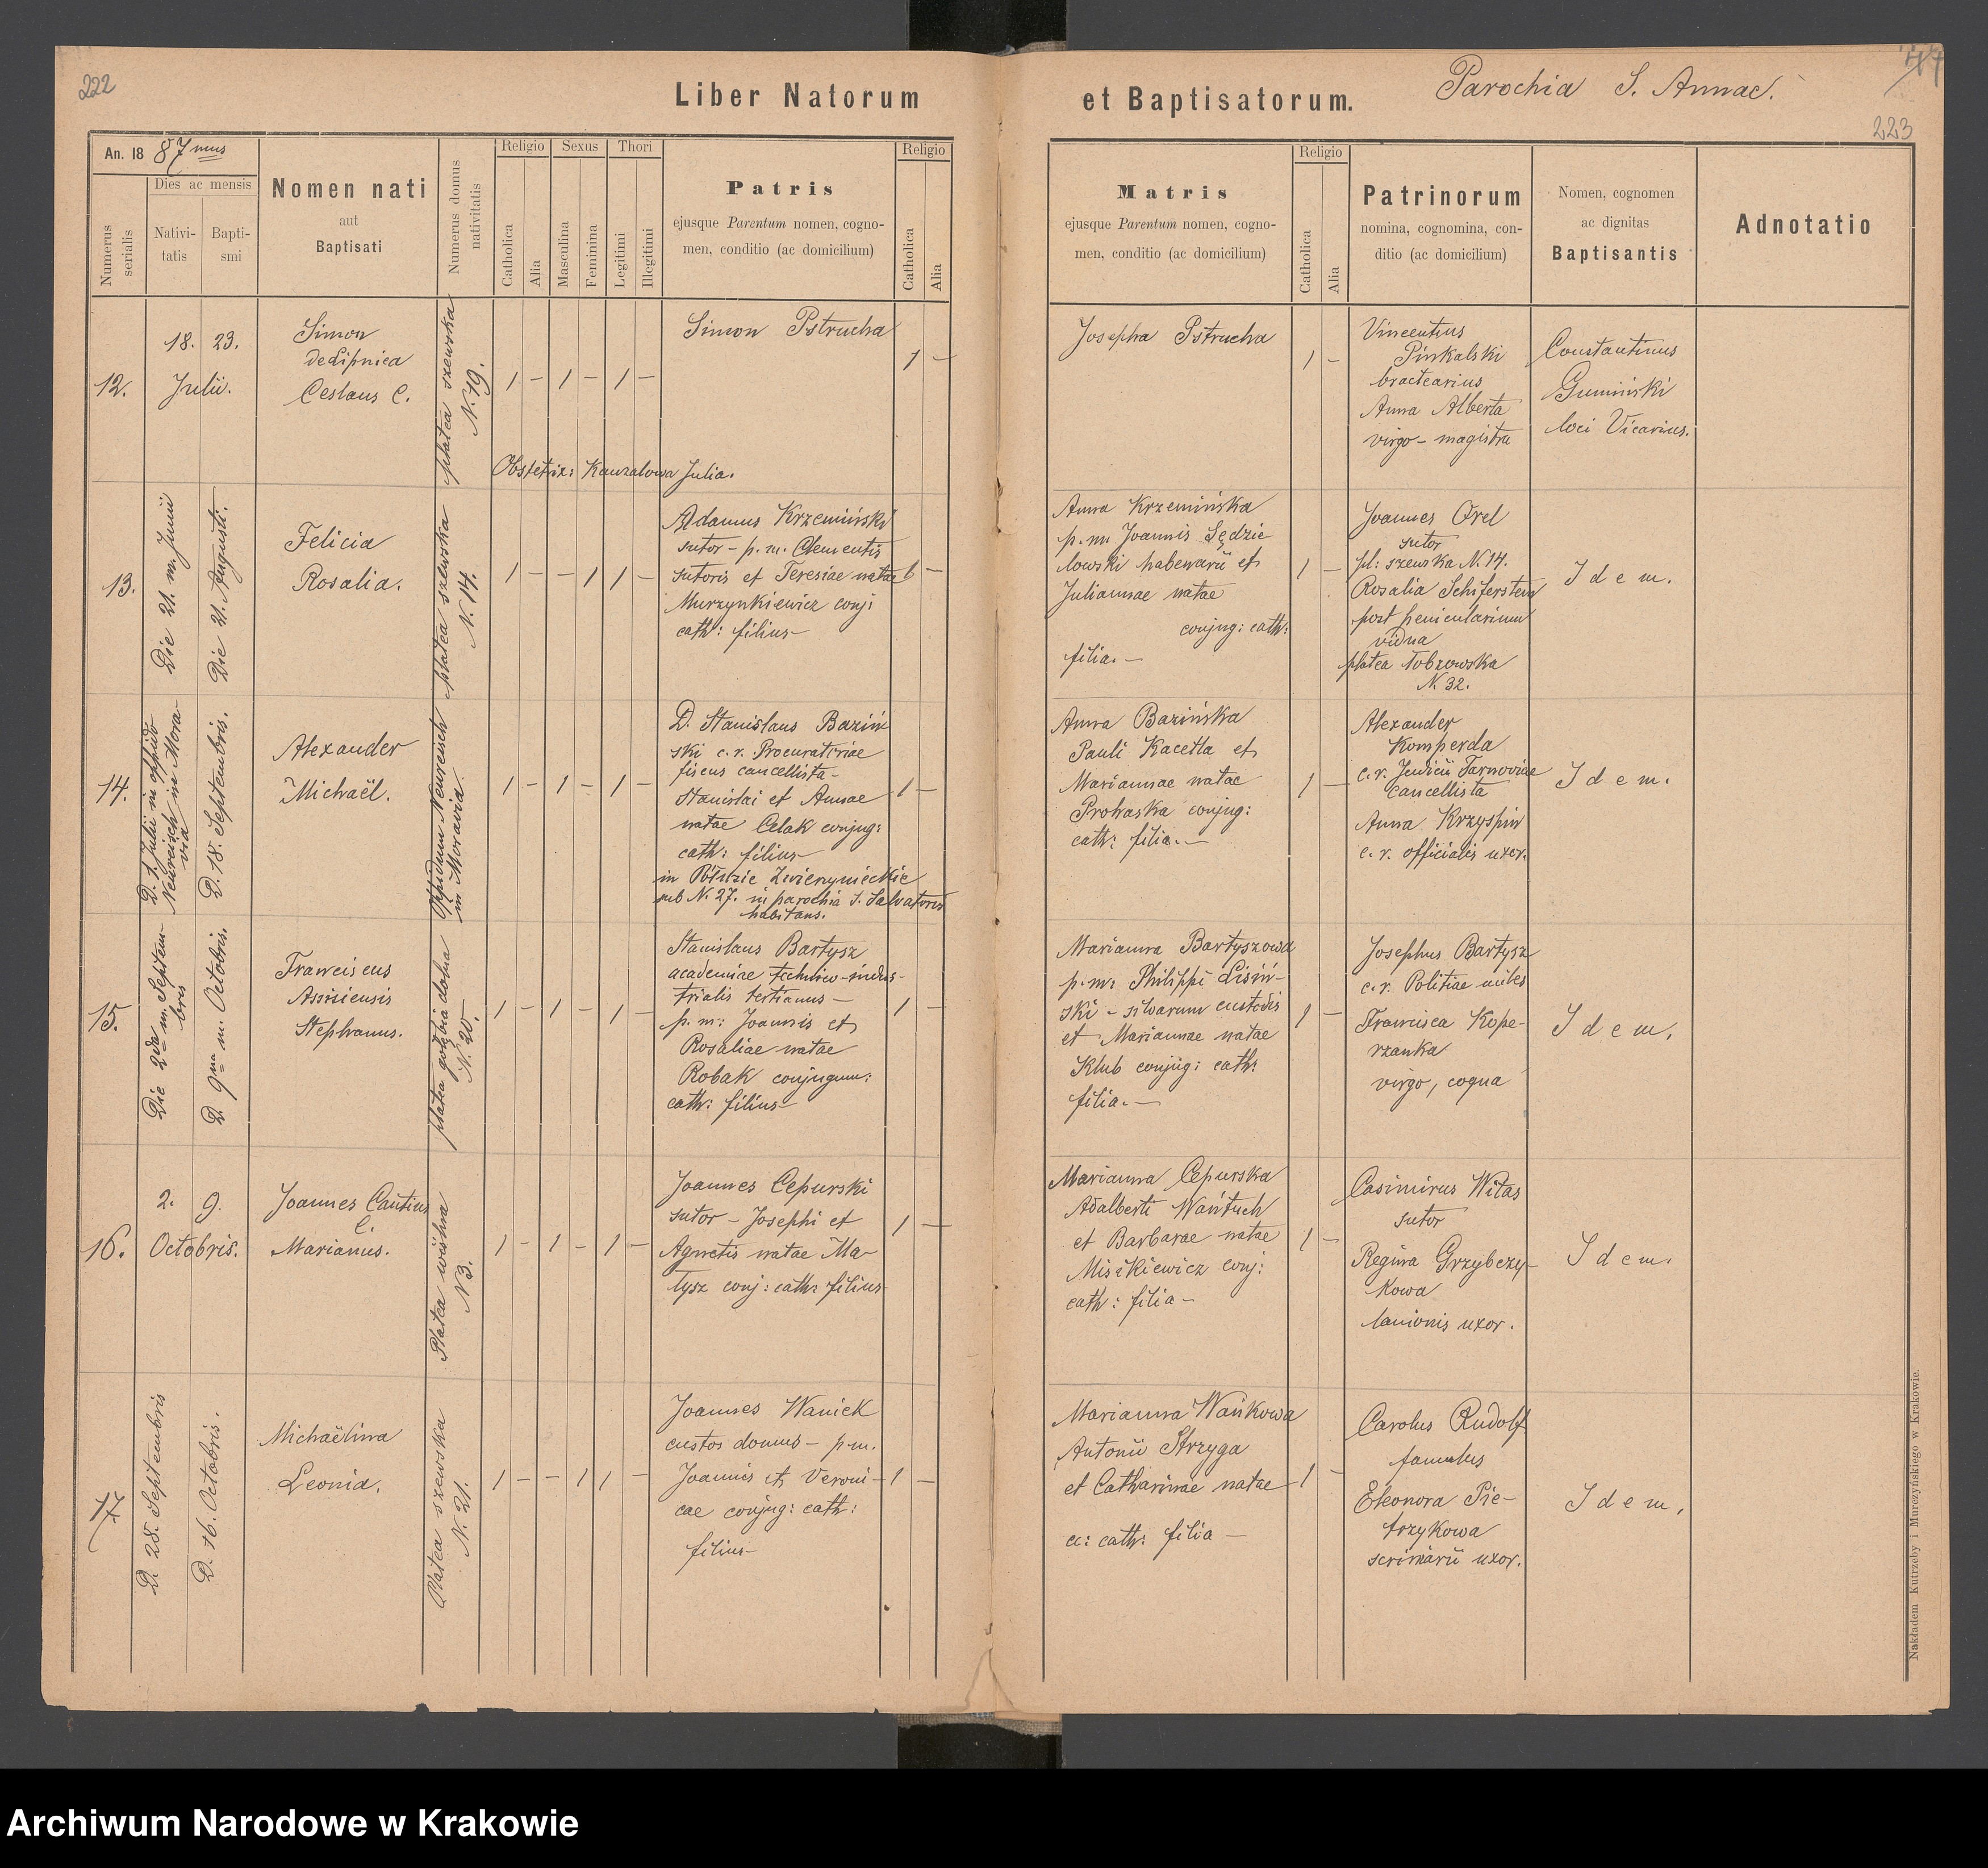 222
Liber Natorum
et Baptisatorum.
Parochia S. Annae.
223
An. 18 87mus
Numerus serialis
Dies ac mensis
Nativi-
tatis
Bapti-
smi
Nomen nati
aut
Baptisati
Numerus domus
nativitatis
Religio
Catholica
Alia
Sexus
Masculina
Feminina
Thori
Legitimi
Illegitimi
Patris
ejusque Parentum nomen, cogno-
men, conditio (ac domicilium)
Religio
Catholica
Alia
Matris
ejusque Parentum nomen, cogno-
men, conditio (ac domicilium)
Religio
Catholica
Alia
Patrinorum
nomina, cognomina, con-
ditio (ac domicilium)
Nomen, cognomen
ac dignitas
Baptisantis
Adnotatio
12.
18. 23.
Julii.
Simon
de Lipnica
Ceslaus C.
platea szewska
N. 19.
1 – 1 – 1 –
Simon Pstrucha
1 –
Obstetrix: Kanzalowa Julia.
Josepha Pstrucha
1 –
Vincentius
Pinkalski
bractearius
Anna Alberta
virgo – magistra
Constantinus
Gumiński
loci Vicarius.
13.
Die 21. m. Junii
Die 21. Augusti.
Felicia
Rosalia.
platea szewska
N. 14.
1 – – 1 1 –
Adamus Krzemiński
sutor – p. m. Clementis
sutoris et Teresiae natae
Murzynkiewicz conj:
cath: filius –
1 –
Anna Krzemińska
p. m. Joannis Sędzie
lowski habenarii et
Juliannae natae
conjug: cath:
filia. –
1 –
Joannes Orel
sutor
pl: szewska N. 14.
Rosalia Schiferstein
post penicularium
vidua
platea Łobzowska
N. 32.
Idem.
14.
D. 1. Julii in oppido
Neureisch in Mora-
via
D. 18. Septembris.
Alexander
Michaël.
Oppidum Neureisch
in Moravia.
1 – 1 – 1 –
D. Stanislaus Baziń
ski c. r. Procuratoriae
fiscus cancellista –
Stanislai et Annae
natae Celak conjug:
cath: filius –
in Półwsie Zwierzynieckie
sub N. 27. in parochia S. Salvatoris
habitans.
1 –
Anna Bazińska
Pauli Kacetta et
Mariannae natae
Prohaska conjug:
cath: filia. –
1 –
Alexander
Komperda
c. r. Judicii Tarnoviae
cancellista
Anna Krzyspin
c. r. officialis uxor.
Idem.
15.
Die 2da m. Septem-
bris
D. 9na m. Octobris.
Franciscus
Assisiensis
Stephanus.
platea gołębia dolna
N. 20.
1 – 1 – 1 –
Stanislaus Bartysz
academiae technico-indus-
trialis tertianus –
p. m: Joannis et
Rosaliae natae
Robak conjugum:
cath: filius –
1 –
Marianna Bartyszowa
p. m: Philippi Lisiń-
ski – silvarum custodis
et Mariannae natae
Klub conjug: cath:
filia. –
1 –
Josephus Bartysz
c. r. Politiae miles
Francisca Kope-
rzanka
virgo, coqua
Idem.
16.
2. 9.
Octobris.
Joannes Cantius
C.
Marianus.
Platea wiślna
N 3.
1 – 1 – 1 –
Joannes Cepurski
sutor – Josephi et
Agnetis natae Ma-
tysz conj: cath: filius
1 –
Marianna Cepurska
Adalberti Wańtuch
et Barbarae natae
Miśkiewicz conj:
cath: filia –
1 –
Casimirus Witas
sutor
Regina Grzybczy-
kowa
lanionis uxor.
Idem.
17.
D. 28. Septembris
D. 16. Octobris.
Michaëlina
Leonia.
Platea szewska
N. 21.
1 – – 1 1 –
Joannes Waniek
custos domus – p m.
Joannis et Veroni-
cae conjug: cath:
filius –
1 –
Marianna Wańkowa
Antonii Strzyga
et Catharinae natae
cc: cath: filia –
1 –
Carolus Rudolf
famulus
Eleonora Pie-
trzykowa
scriniarii uxor.
Idem.
Nakładem Kutrzeby i Murczyńskiego w Krakowie.
Archiwum Narodowe w Krakowie